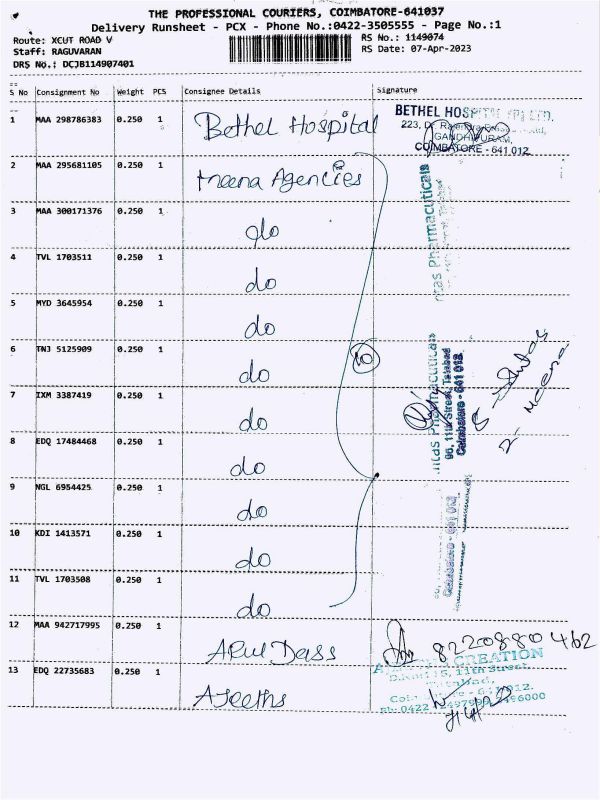 THE PROFESSIONAL COURIERS, COIMBATORE-641037
Delivery Runsheet - PCX - Phone No.:0422-3505555 - Page No.:1
Route: XCUT ROAD V RS No.: 1149074
Staff: RAGUVARAN RS Date: 07-Apr-2023
DRS No.: DCJB114907401
S No Consignment No Weight PCS Consignee Details Signature
1 MAA 298786383 0.250 1 Bethel Hospital
BETHEL HOSPITAL (P) LTD.
GANDHIPURAM,
COIMBATORE - 641 012
2 MAA 295681105 0.250 1 Meena Agencies
3 MAA 300171376 0.250 1 do
4 TVL 1703511 0.250 1 do
5 MYD 3645954 0.250 1 do
6 TNJ 5125909 0.250 1 do
10
7 IXM 3387419 0.250 1 do
8 EDQ 17484468 0.250 1 do
9 NGL 6954425 0.250 1 do
10 KDI 1413571 0.250 1 do
11 TVL 1703508 0.250 1 do
Pharmacuticals
Pharmacuticals
96, 11th Street, Tatabad
Coimbatore - 641 012.
Coimbatore - 641 012.
2 - Meena
12 MAA 942717995 0.250 1 Arul Dass 8220880462
13 EDQ 22735683 0.250 1 Ajeeths
CREATION
11th Street,
Tatabad,